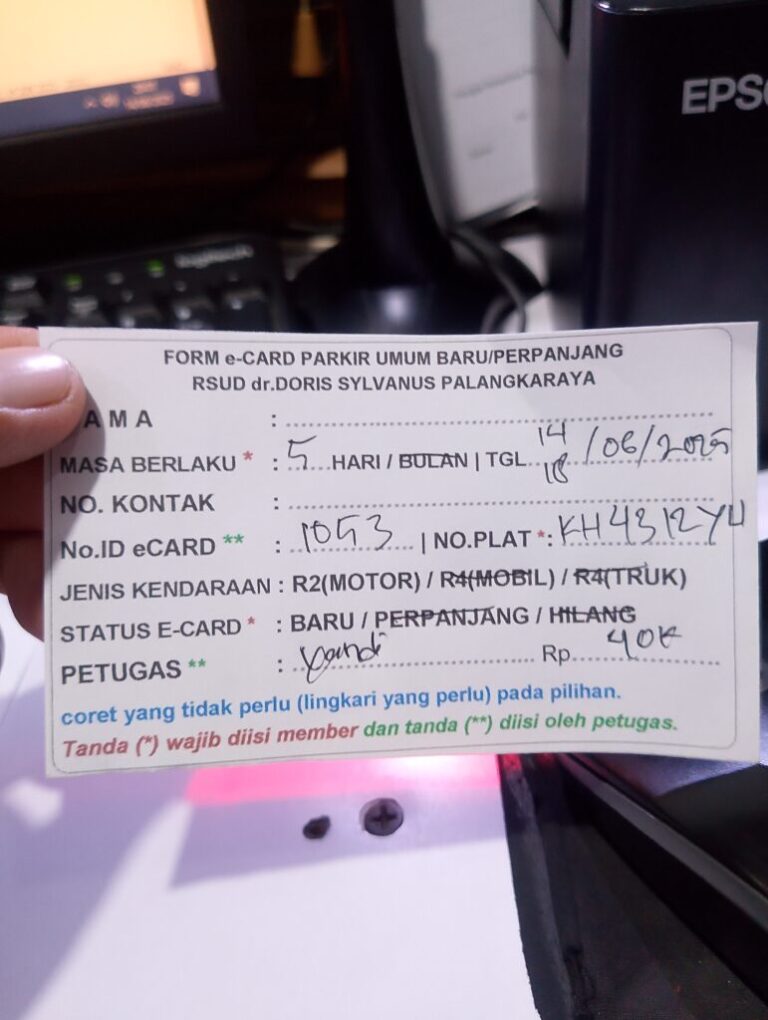 EPSO
logitech
FORM e-CARD PARKIR UMUM BARU/PERPANJANG
RSUD dr.DORIS SYLVANUS PALANGKARAYA
AMA :
MASA BERLAKU * : 5 HARI / BULAN | TGL. 14/18 /06/2025
NO. KONTAK :
No.ID eCARD ** : 1053 | NO.PLAT *: KH4312YU
JENIS KENDARAAN : R2(MOTOR) / R4(MOBIL) / R4(TRUK)
STATUS E-CARD * : BARU / PERPANJANG / HILANG
PETUGAS ** : Yandi Rp. 40K
coret yang tidak perlu (lingkari yang perlu) pada pilihan.
Tanda (*) wajib diisi member dan tanda (**) diisi oleh petugas.